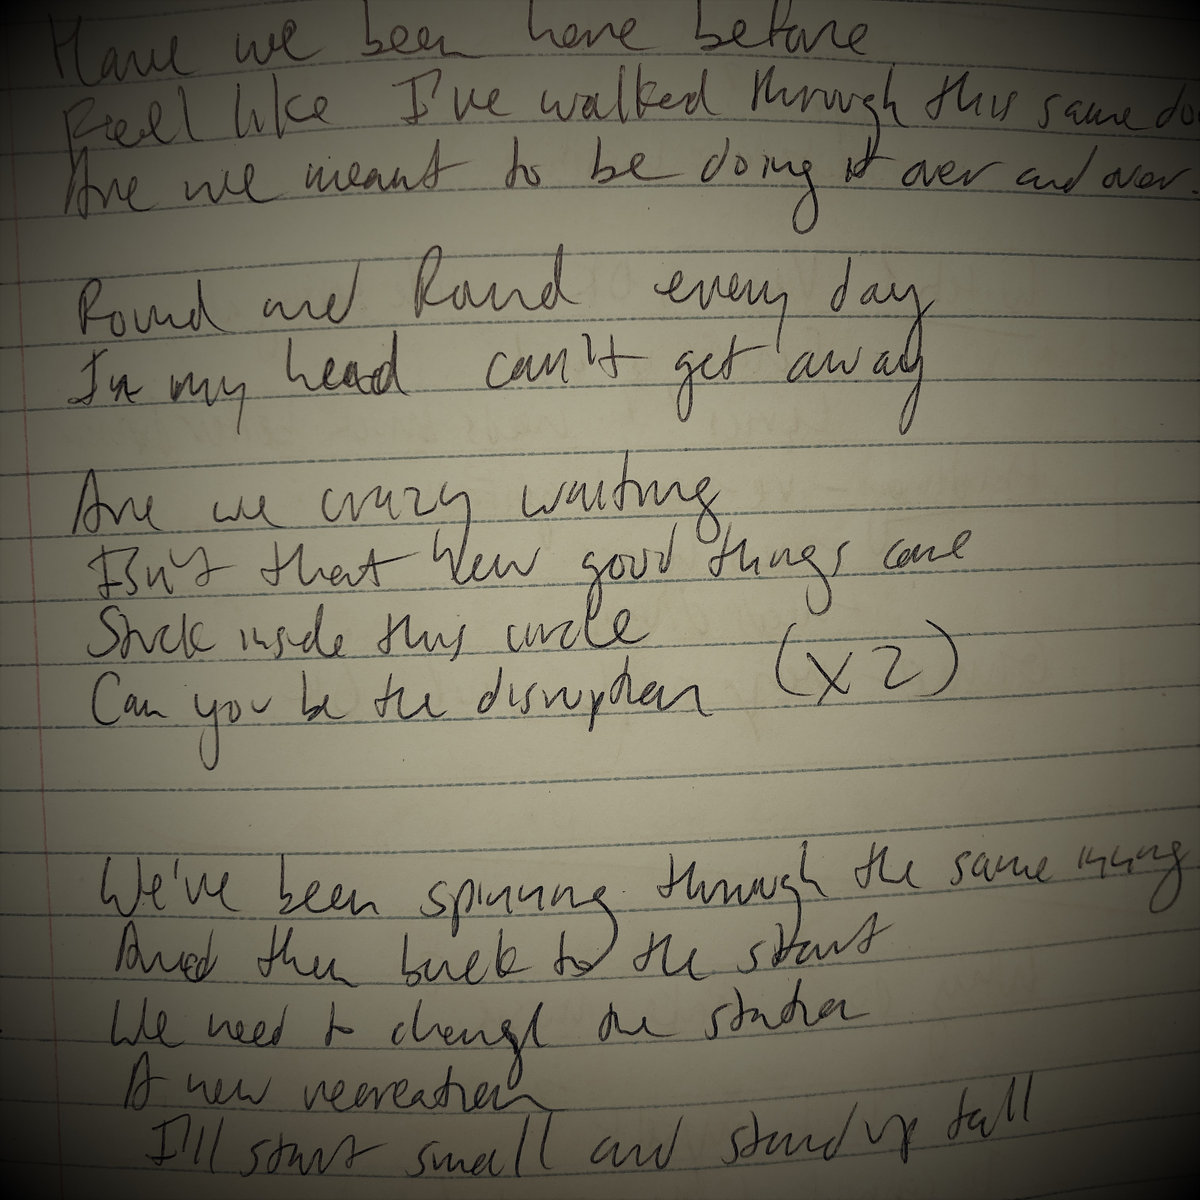 Have we been here before
Feel like I've walked through this same do
Are we meant to be doing it over and over.
Round and Round every day
In my head can't get away
Are we crazy waiting
Isn't that how good things come
Stuck inside this circle
Can you be the disruption (x2)
We've been spinning through the same
And then back to the start
We need to change the station
A new recreation
I'll start small and stand up tall